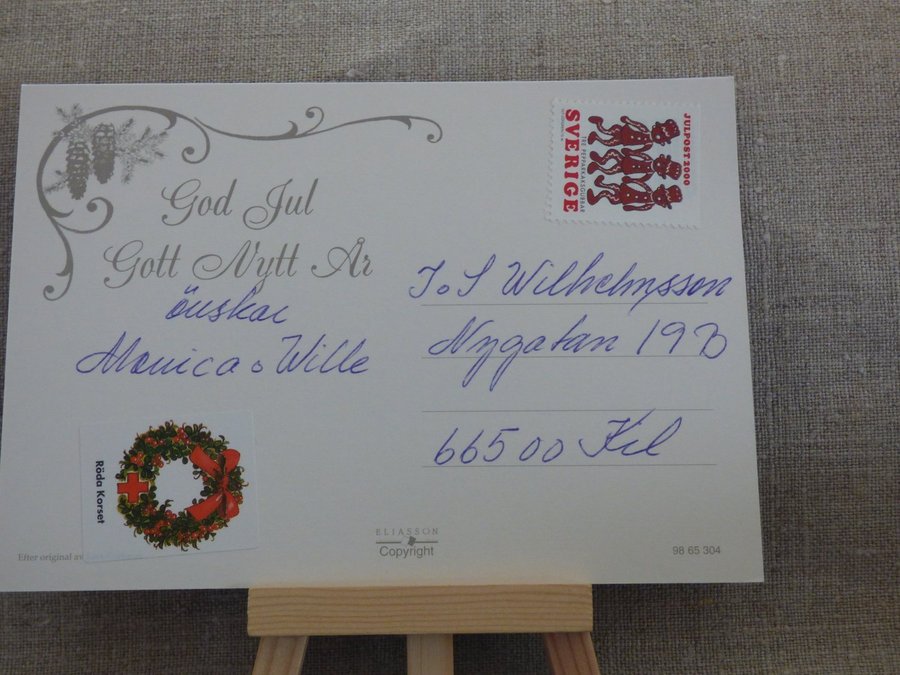 God Jul
Gott Nytt År
önskar
Monica o Wille
Röda Korset
Efter original av
JULPOST 2000
TRE PEPPARKAKSGUBBAR
SVERIGE
J o S Wilhelmsson
Nygatan 19B
665 00 Kil
ELIASSON
Copyright
98 65 304